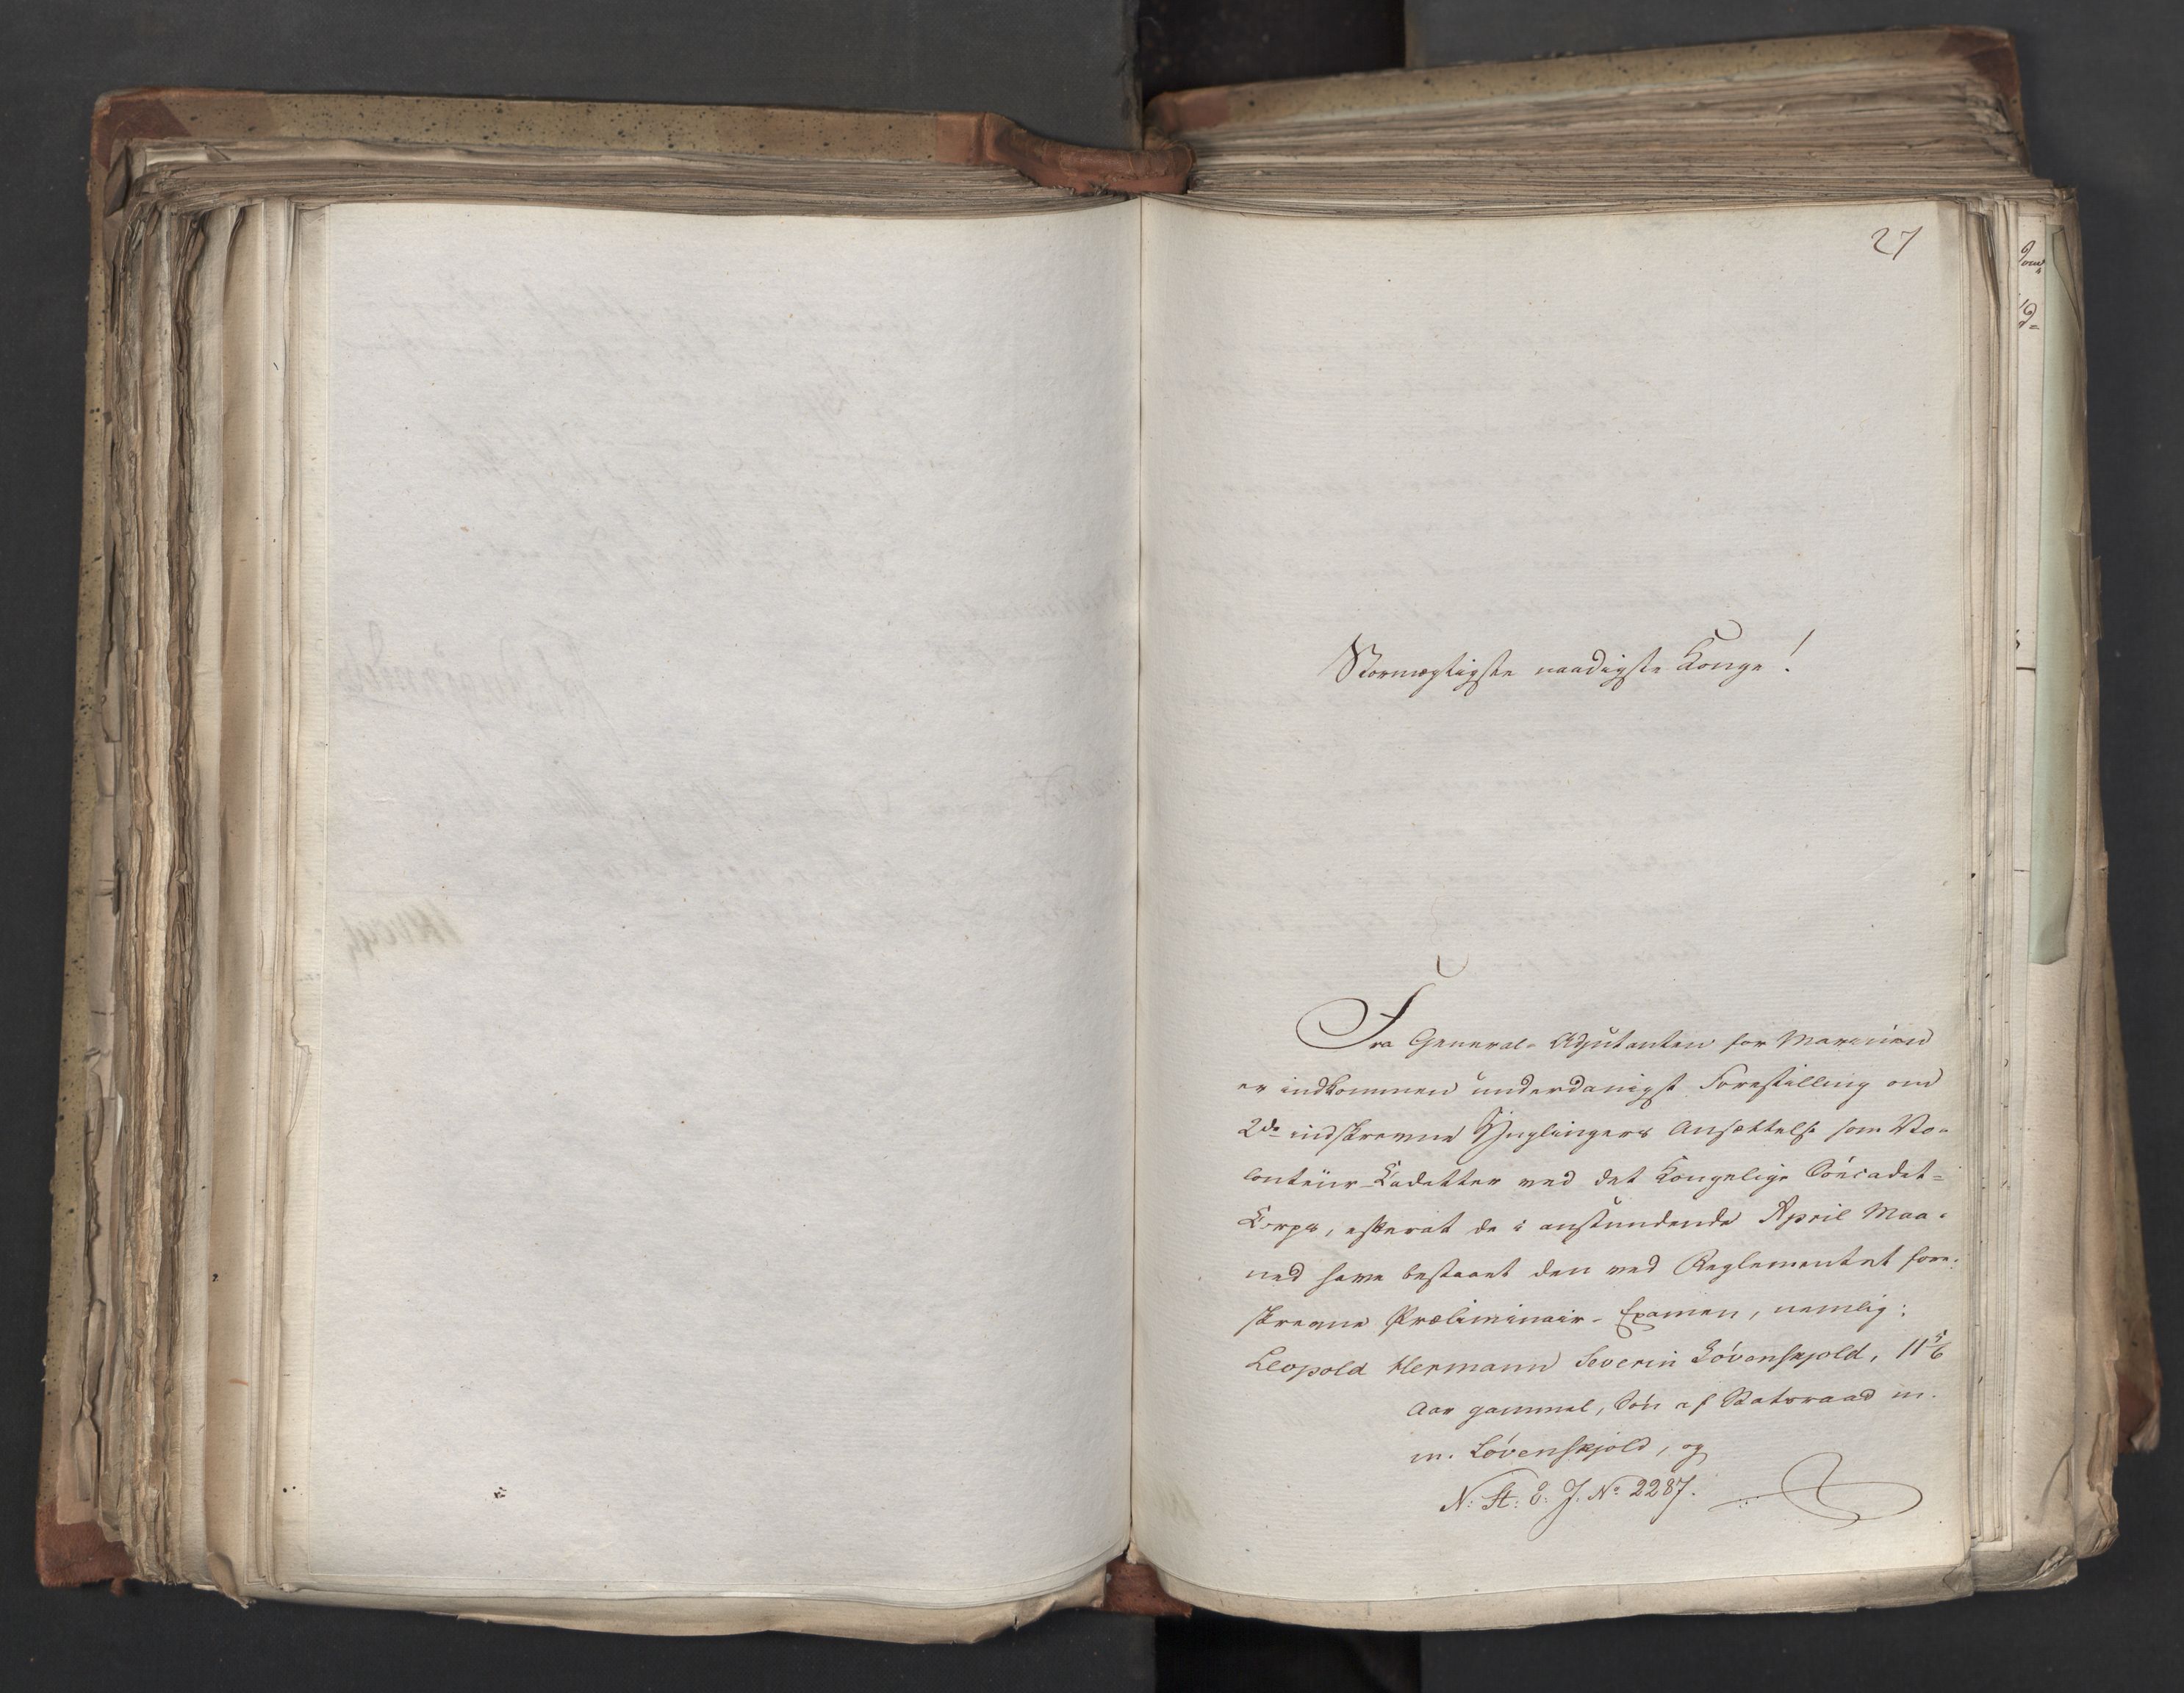 27
Stormægtigste naadigste Konge!
Fra General-Adjutanten for Marinen
er indkommen underdanigst Forestilling om
2de indskrevne Ynglingers Ansættelse som Vo-
lonteur-Cadetter ved det Kongelige Søecadet-
Corps, efterat de i anstundende April Maa-
ned have bestaaet den ved Reglementet fore-
skrevne Præliminair-Examen, nemlig:
Leopold Hermann Severin Løvenskjold, 11 5/6
Aar gammel, Søn af Statsraad m.
m. Løvenskjold, og
N: St: E: J. No 2287.